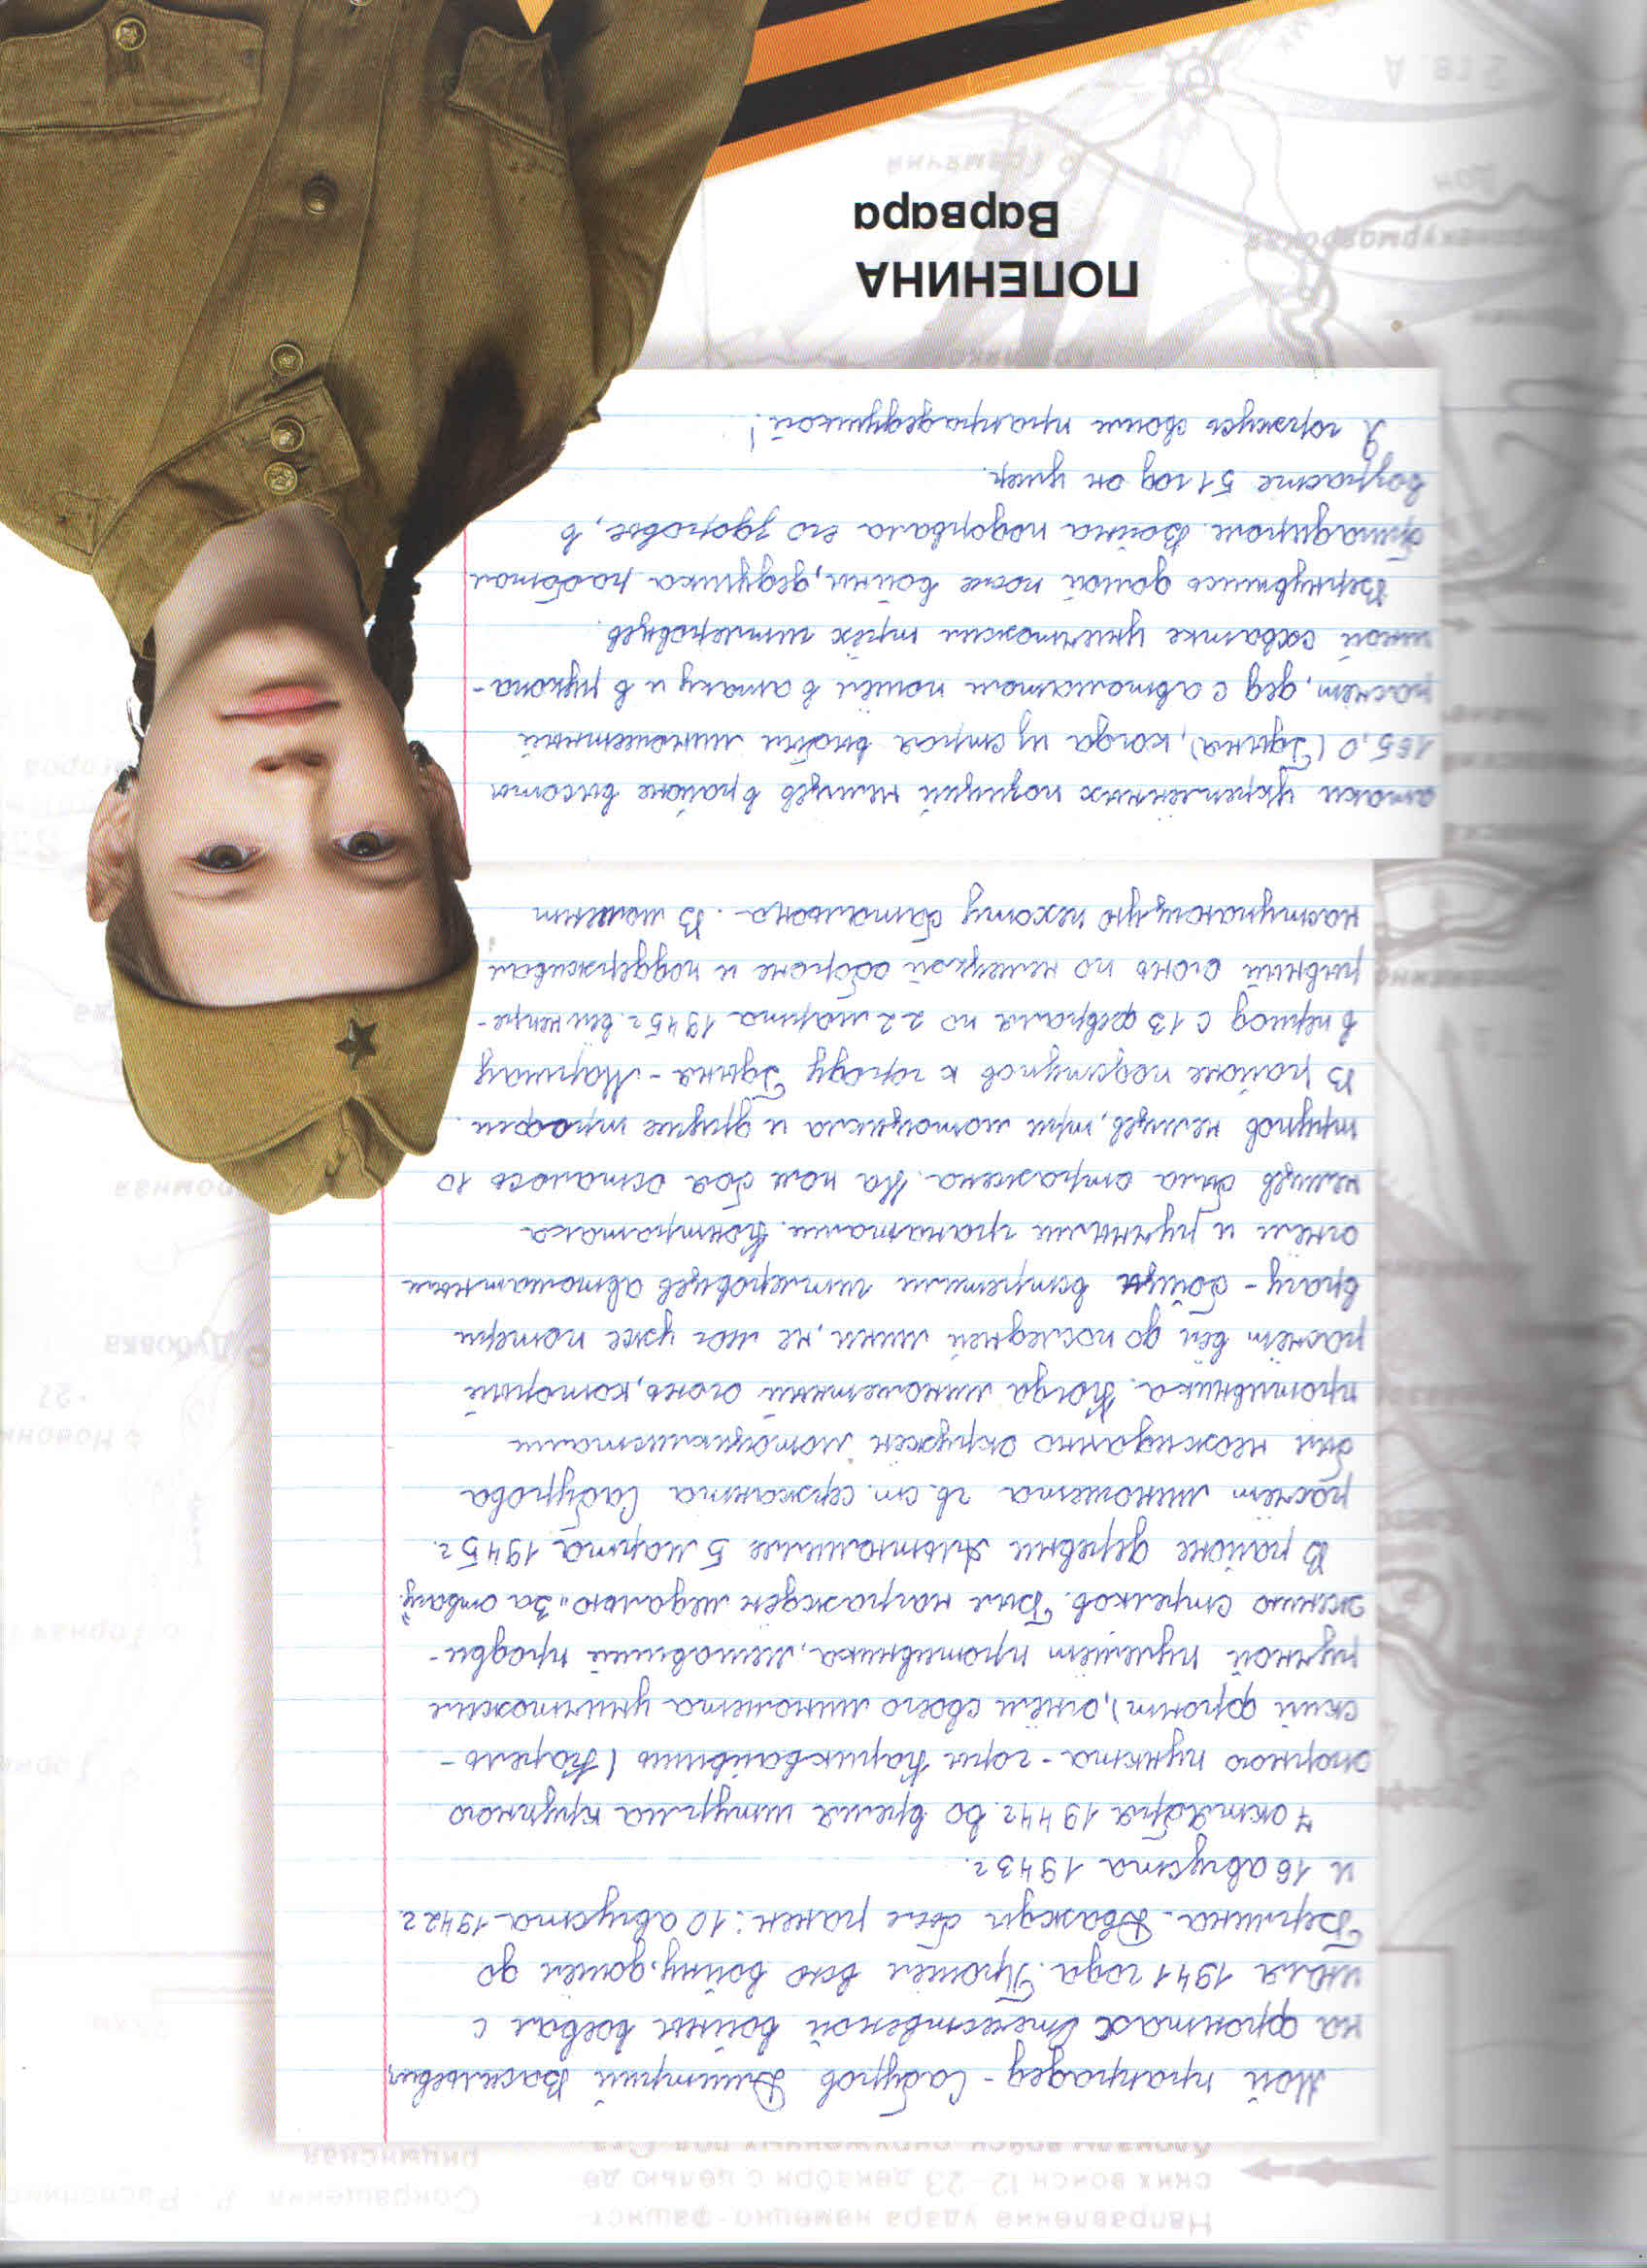 Направление удара немецко-фашист-
ских войск 12-23 декабря с целью де-
Сокращения
рицынская
Мой прапрадед - Сабуров Дмитрий Васильевич,
на фронтах Отечественой войны воевал с
июля 1941 года. Прошёл всю войну, дошёл до
Берлина. Дважды был ранен: 10 августа 1942 г.
и 16 августа 1943 г.
7 октября 1944г. во время штурма крупного
опорного пункта - горы Кариквайвишь (Карель-
ский фронт), огнём своего миномета уничтожил
ручной пулемёт противника, мешавший продви-
жению стрелков. Был награждён медалью „За отвагу".
В районе деревни Альтюмилле 5 марта 1945 г.
расчёт миномета гв. ст. сержанта Сабурова
был неожиданно окружён мотоциклистами
противника. Когда минометный огонь, который
расчёт вёл до последней мины, не мог уже потери
врагу - бойцы встретили гитлеровцев автоматным
огнём и ручными гранатами. Контратака
немцев была отражена. На поле боя осталось 10
трупов немцев, три мотоцикла и другие трофеи.
В районе подступов к городу Гдыня - Маршау
в период с 13 февраля по 22 марта 1945 г. вёл непре-
рывный огонь по немецкой обороне и поддерживал
наступающую пехоту батальона. В момент
атаки укреплённых позиций немцев в районе высоты
165,0 (Гдыня), когда из строя выбыл минометный
расчёт, дед с автоматом пошёл в атаку и в рукопа-
шной схватке уничтожил трёх гитлеровцев.
Вернувшись домой после войны, дедушка работал
бригадиром. Война подорвала его здоровье, в
возрасте 51 год он умер.
Я горжусь своим прапрадедушкой!
Горная
Новони
27
Дубовка
ромная
город
ПОПЕНИНА
Варвара
Дон
Громячий
2 гв. А